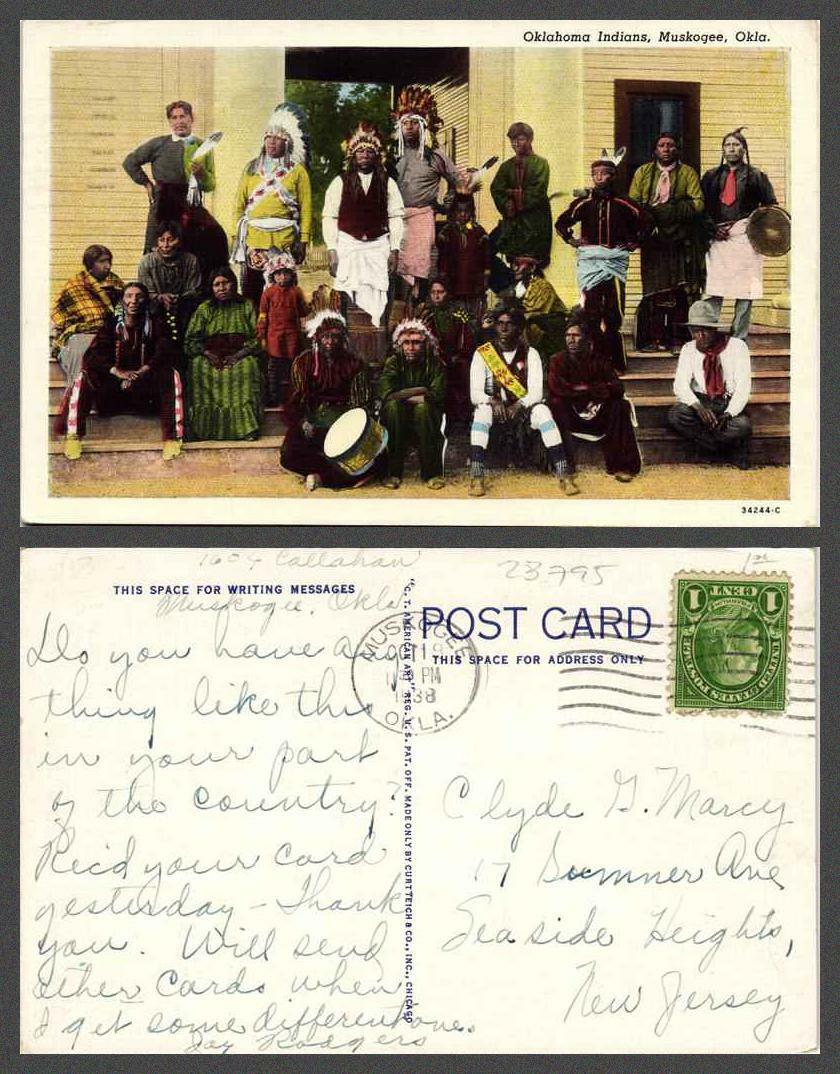 Oklahoma Indians, Muskogee, Okla.
34244-C
1604 Callahan
Muskogee, Okla
23795
THIS SPACE FOR WRITING MESSAGES
Do you have any
thing like this
in your part
of the country?
Rec'd your card
yesterday - Thank
you. Will send
other cards when
I get some different one.
Jay Rodgers
"C. T. AMERICAN ART" REG. U. S. PAT. OFF. MADE ONLY BY CURT TEICH & CO., INC., CHICAGO
POST CARD
THIS SPACE FOR ADDRESS ONLY
MUSKOGEE
19
PM
38
OKLA.
UNITED STATES POSTAGE
1 CENT 1
Clyde G. Marcy
17 Sumner Ave
Seaside Heights,
New Jersey